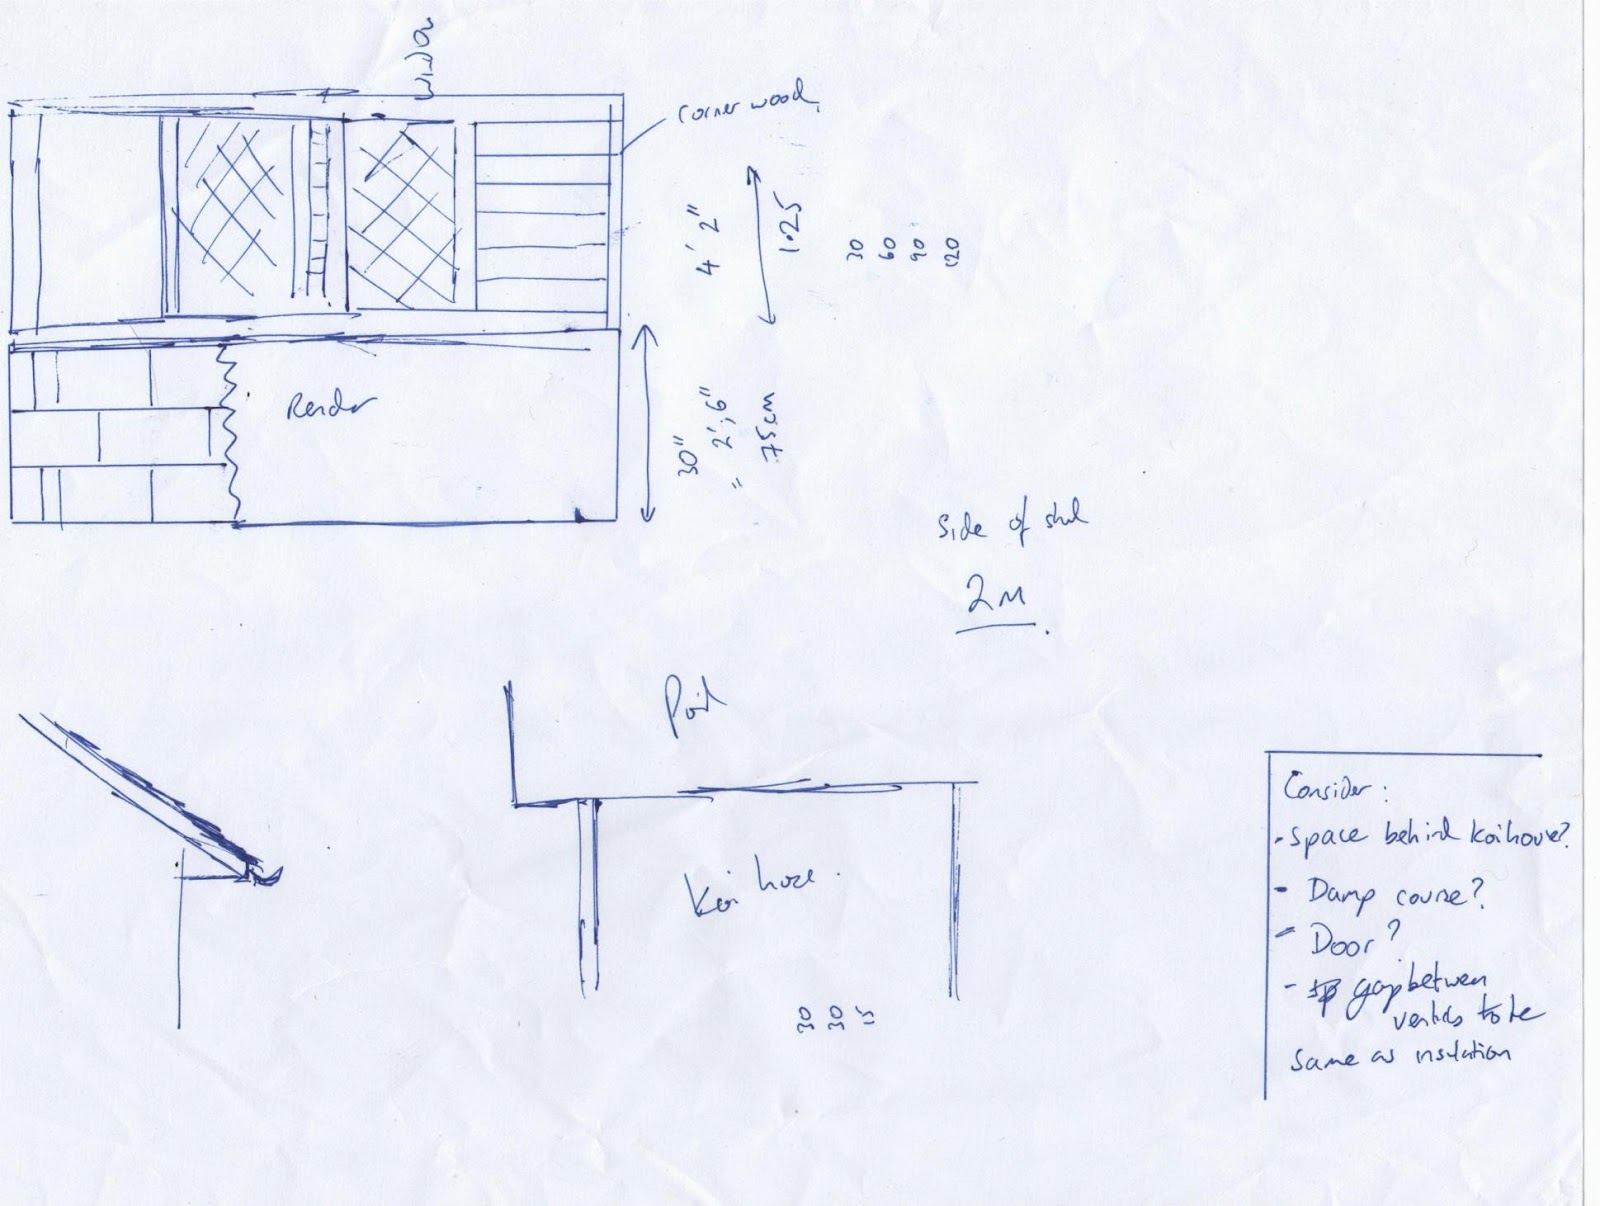 corner wood
4' 2"
1.25
30
60
90
120
Render
30"
= 2', 6"
75cm
Side of shed
2M
Koi house.
30
30
15
Consider:
- Space behind Koi house?
- Damp course?
- Door?
- gap between
verticals to be
same as insulation